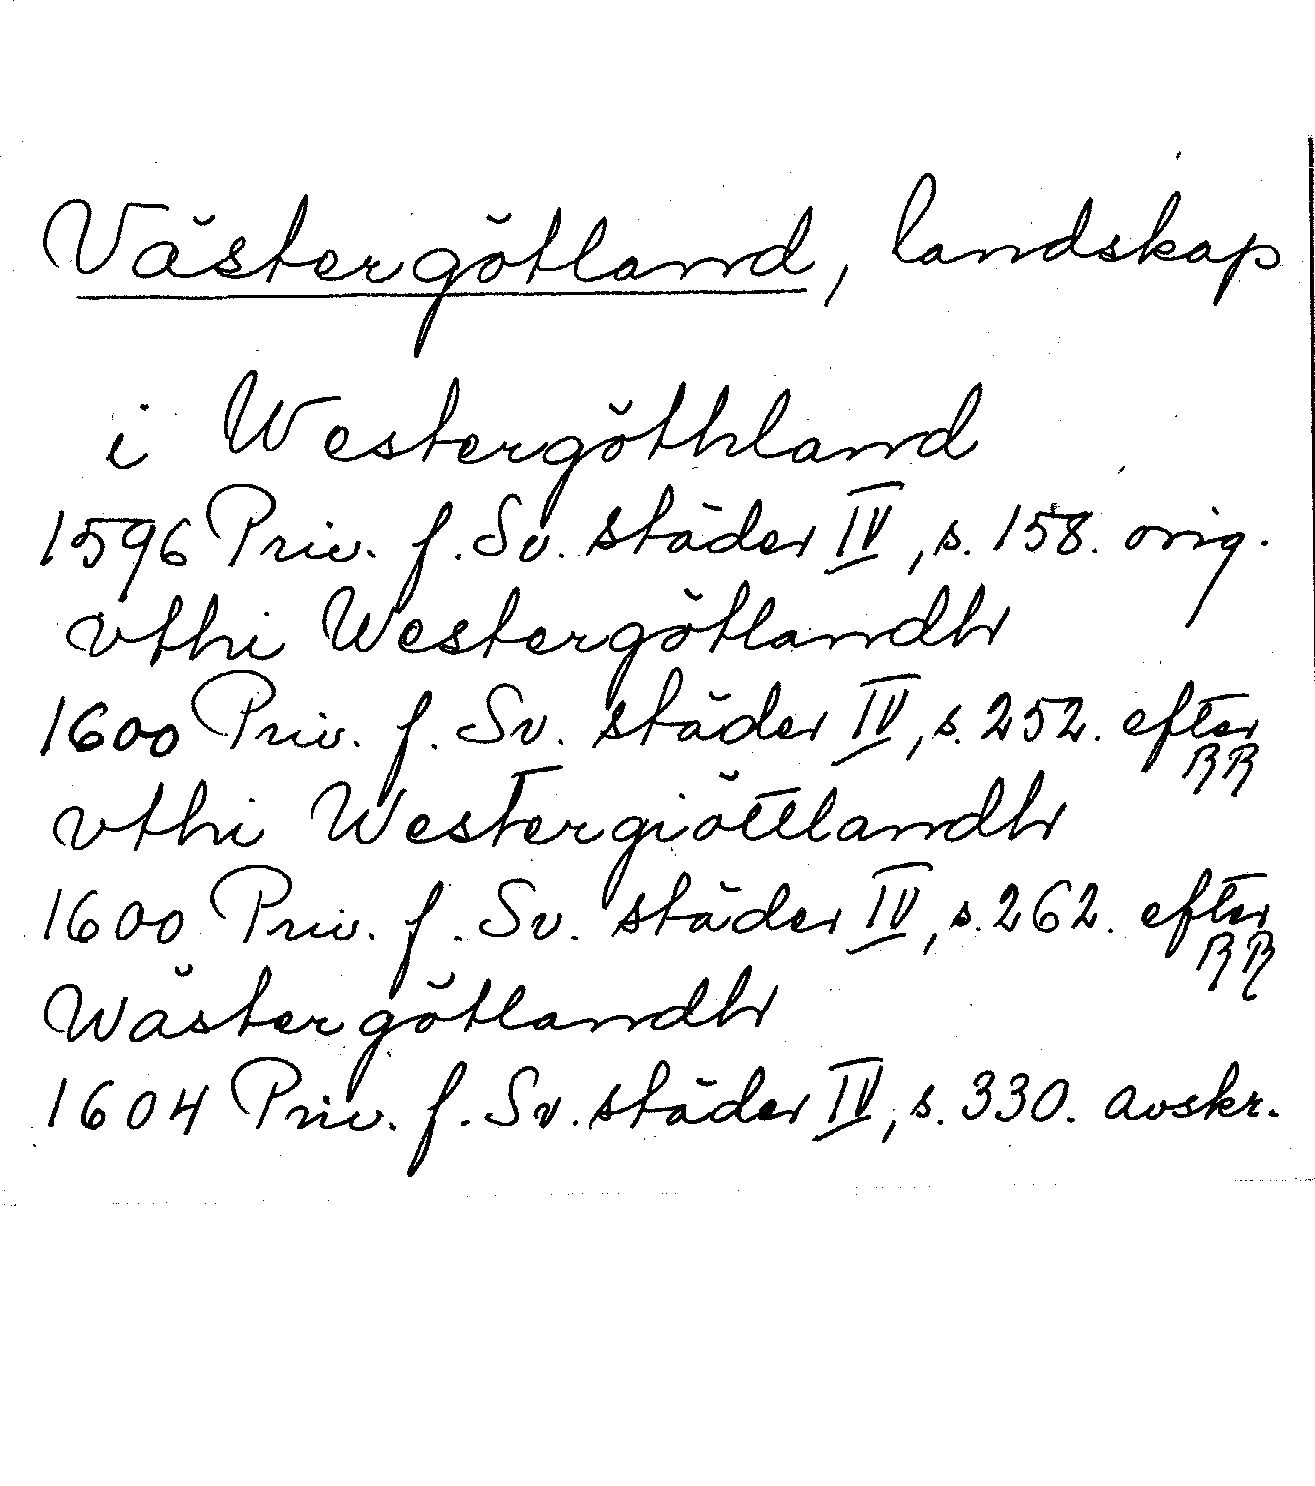 Västergötland, landskap
i Westergöthland
1596 Priv. f. Sv. städer IV, s. 158. orig.
vthi Westergötlandh
1600 Priv. f. Sv. städer IV, s. 252. efter RR
vthi Westergiöttlandh
1600 Priv. f. Sv. städer IV, s. 262. efter RR
Wästergötlandh
1604 Priv. f. Sv. städer IV, s. 330. avskr.